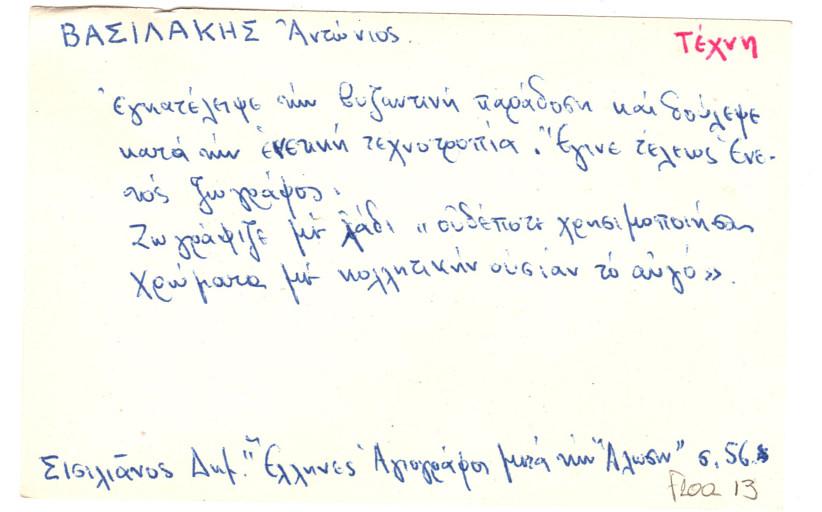 ΒΑΣΙΛΑΚΗΣ Ἀντώνιος.
ΤΕΧΝΗ
Ἐγκατέλειψε τὴν βυζαντινὴ παράδοση καὶ δούλεψε
κατὰ τὴν ἐνετικὴ τεχνοτροπία. Ἔγινε τέλειος Ἐνε-
τὸς ζωγράφος.
Ζωγράφιζε μὲ λάδι «οὐδέποτε χρησιμοποιήσας
χρώματα μὲ κολλητικὴν οὐσίαν τὸ αὐγό».
Σισιλιᾶνος Δημ. "Ἕλληνες Ἁγιογράφοι μετὰ τὴν Ἅλωσιν" σ. 56.
13